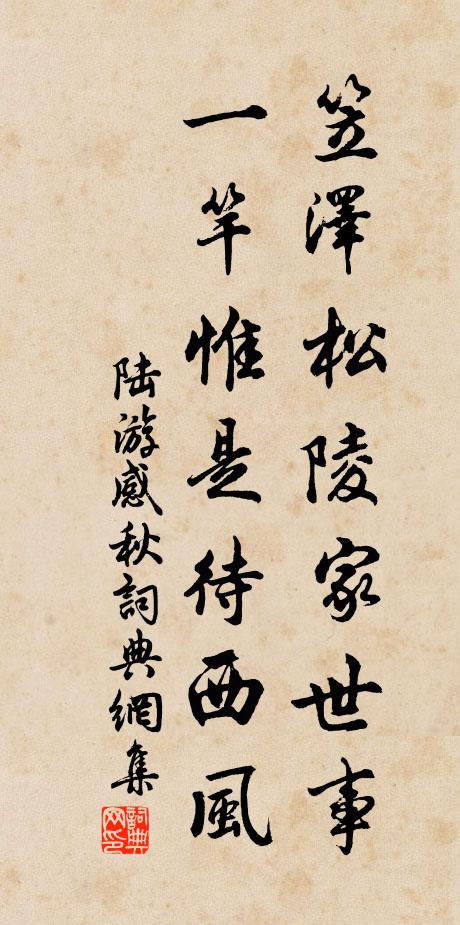 笠澤松陵家世事
一竿惟是待西風
陆游感秋詞典網集
詞典网印